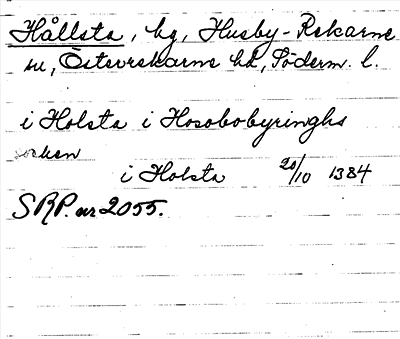 Hållsta, hg, Husby-Rekarne
sn, Österrekarne hd, Söderm. l.
i Holsta i Hosobobyringhs
socken
i Holsta 20/10 1384
SRP. nr 2055.